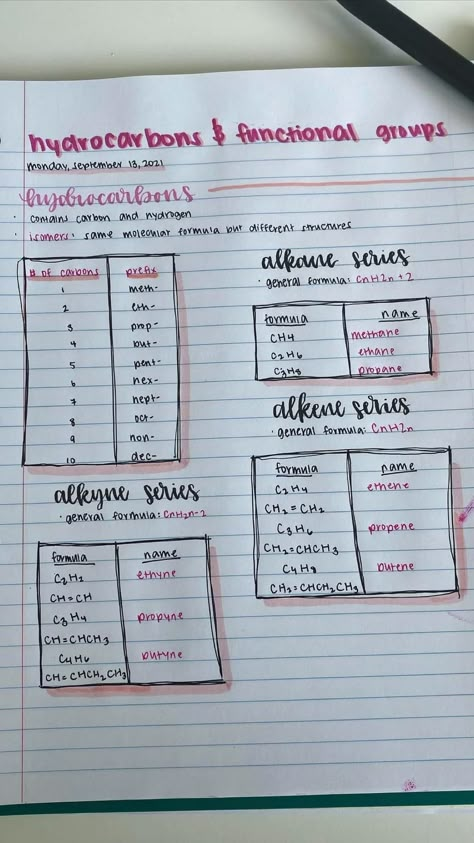 hydrocarbons & functional groups
monday, september 13, 2021
hydrocarbons
· contains carbon and hydrogen
· isomers: same molecular formula but different structures
# of carbons prefix
1 meth-
2 eth-
3 prop-
4 but-
5 pent-
6 hex-
7 hept-
8 oct-
9 non-
10 dec-
alkane series
· general formula: CnH2n+2
formula name
CH4 methane
C2H6 ethane
C3H8 propane
alkene series
· general formula: CnH2n
formula name
C2H4 ethene
CH2=CH2
C3H6 propene
CH2=CHCH3
C4H8 butene
CH2=CHCH2CH3
alkyne series
· general formula: CnH2n-2
formula name
C2H2 ethyne
CH≡CH
C3H4 propyne
CH=CHCH3
C4H6 butyne
CH=CHCH2CH3